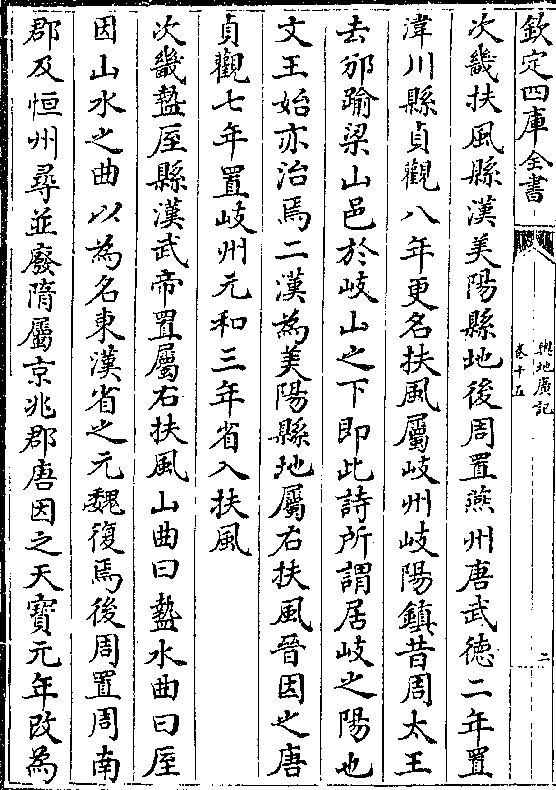 欽定四庫全書
輿地廣記
卷十五
二
次畿扶風縣漢美陽縣地後周置燕州唐武德二年置
湋川縣貞觀八年更名扶風屬岐州岐陽鎮昔周太王
去邠踰梁山邑於岐山之下即此詩所謂居岐之陽也
文王始亦治焉二漢為美陽縣地屬右扶風晉因之唐
貞觀七年置岐州元和三年省入扶風
次畿盩厔縣漢武帝置屬右扶風山曲曰盩水曲曰厔
因山水之曲以為名東漢省之元魏復焉後周置周南
郡及恒州尋並廢隋屬京兆郡唐因之天寶元年改為